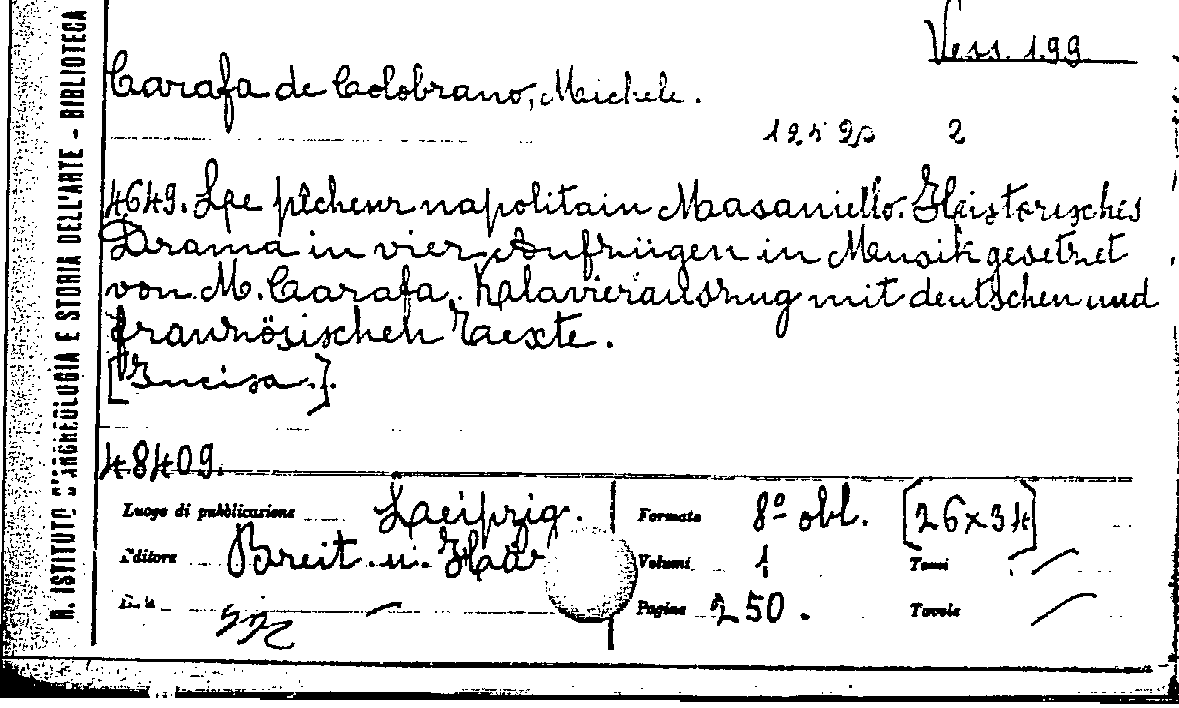 R. ISTITUTO D'ARCHEOLOGIA E STORIA DELL'ARTE - BIBLIOTECA
Vess. 199
Carafa de Colobrano, Michele.
2
4649. Le pêcheur napolitain Masaniello. Historisches
Drama in vier Aufzügen in Musik gesetzet
von M. Carafa. Klavierauszug mit deutschen und
französischen Texte.
[Incisa.].
48409.
Luogo di pubblicazione Leipzig. Formato 8º obl. [26x34]
Editore Breit. u. Här Volumi 1 Tomi /
Data Pagine 250. Tavole /